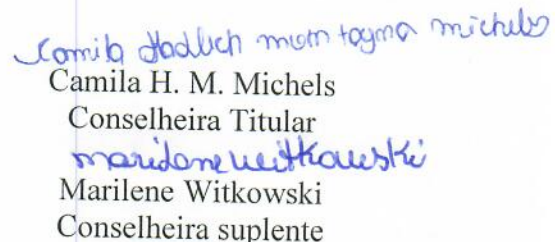 Camila Hadlich montagma michels
Camila H. M. Michels
Conselheira Titular
marilene witkowski
Marilene Witkowski
Conselheira suplente